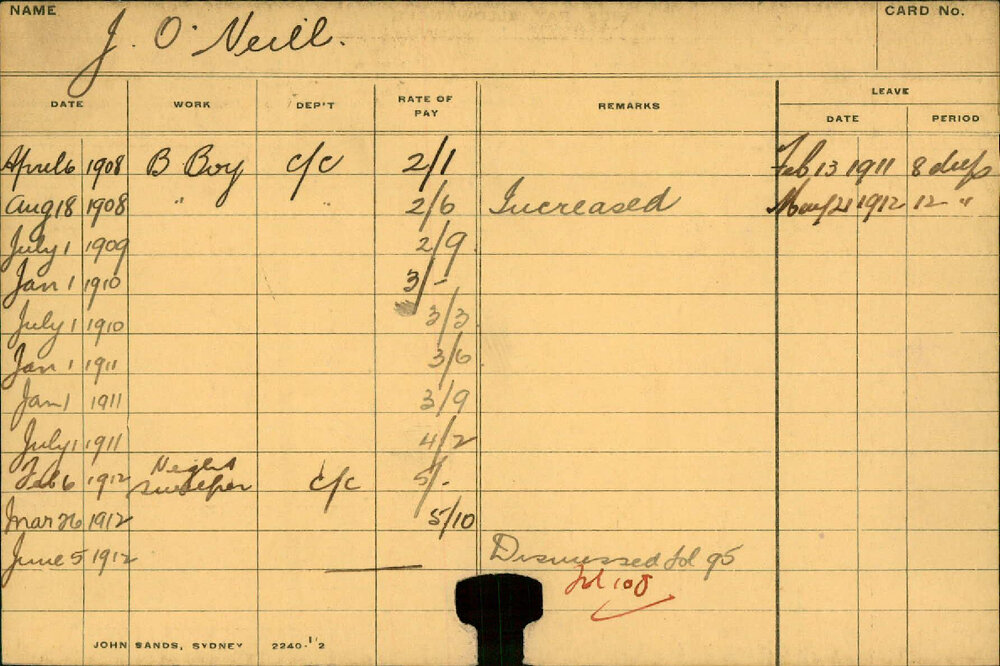 NAME
CARD No.
J. O'Neill.
DATE WORK DEP'T RATE OF PAY REMARKS LEAVE
DATE PERIOD
April 6 1908 B Boy c/c 2/1 Feb 13 1911 8 days
Aug 18 1908 " " 2/6 Increased May 21 1912 12 "
July 1 1909 2/9
Jan 1 1910 3/-
July 1 1910 3/3
Jan 1 1911 3/6
Jan 1 1911 3/9
July 1 1911 4/2
Feb 6 1912 Night sweeper c/c 5/-
Mar 26 1912 5/10
June 5 1912 Dismissed fol 95
fol 108
JOHN SANDS, SYDNEY 2240-1/12